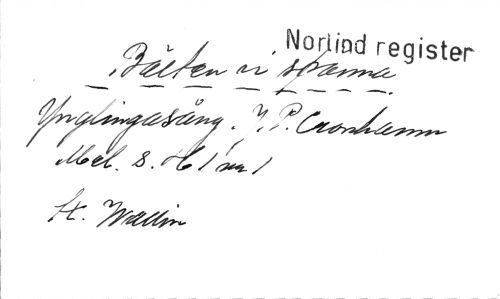 Norlind register
Bälten vi spänna
Ynglingasång. J. P. Cronhamn
Mel. s. H 1 nr 1
St. Wallin